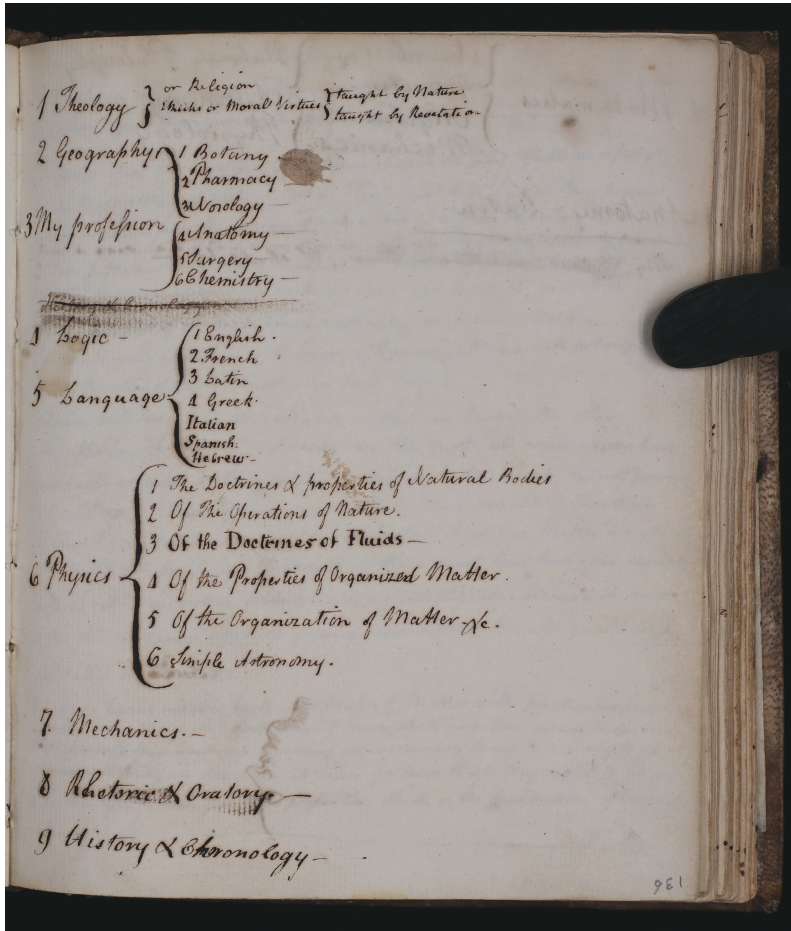 1 Theology or Religion
Ethicks or Moral Virtues taught by Nature
taught by Revelation
2 Geography
1 Botany —
2 Pharmacy
3 Nosology —
3 My profession
4 Anatomy —
5 Surgery
6 Chemistry —
History & Cronology
4 Logic -
5 Language
1 English .
2 French
3 Latin
4 Greek.
Italian
Spanish.
Hebrew —
6 Physics
1 The Doctrines & properties of Natural Bodies
2 Of The Operations of Nature.
3 Of the Doctrines of Fluids —
4 Of the Properties of Organized Matter.
5 Of the Organization of Matter &c.
6 Simple Astronomy.
7. Mechanics. —
8 Rhetoric & Oratory —
9 History & Chronology —
136